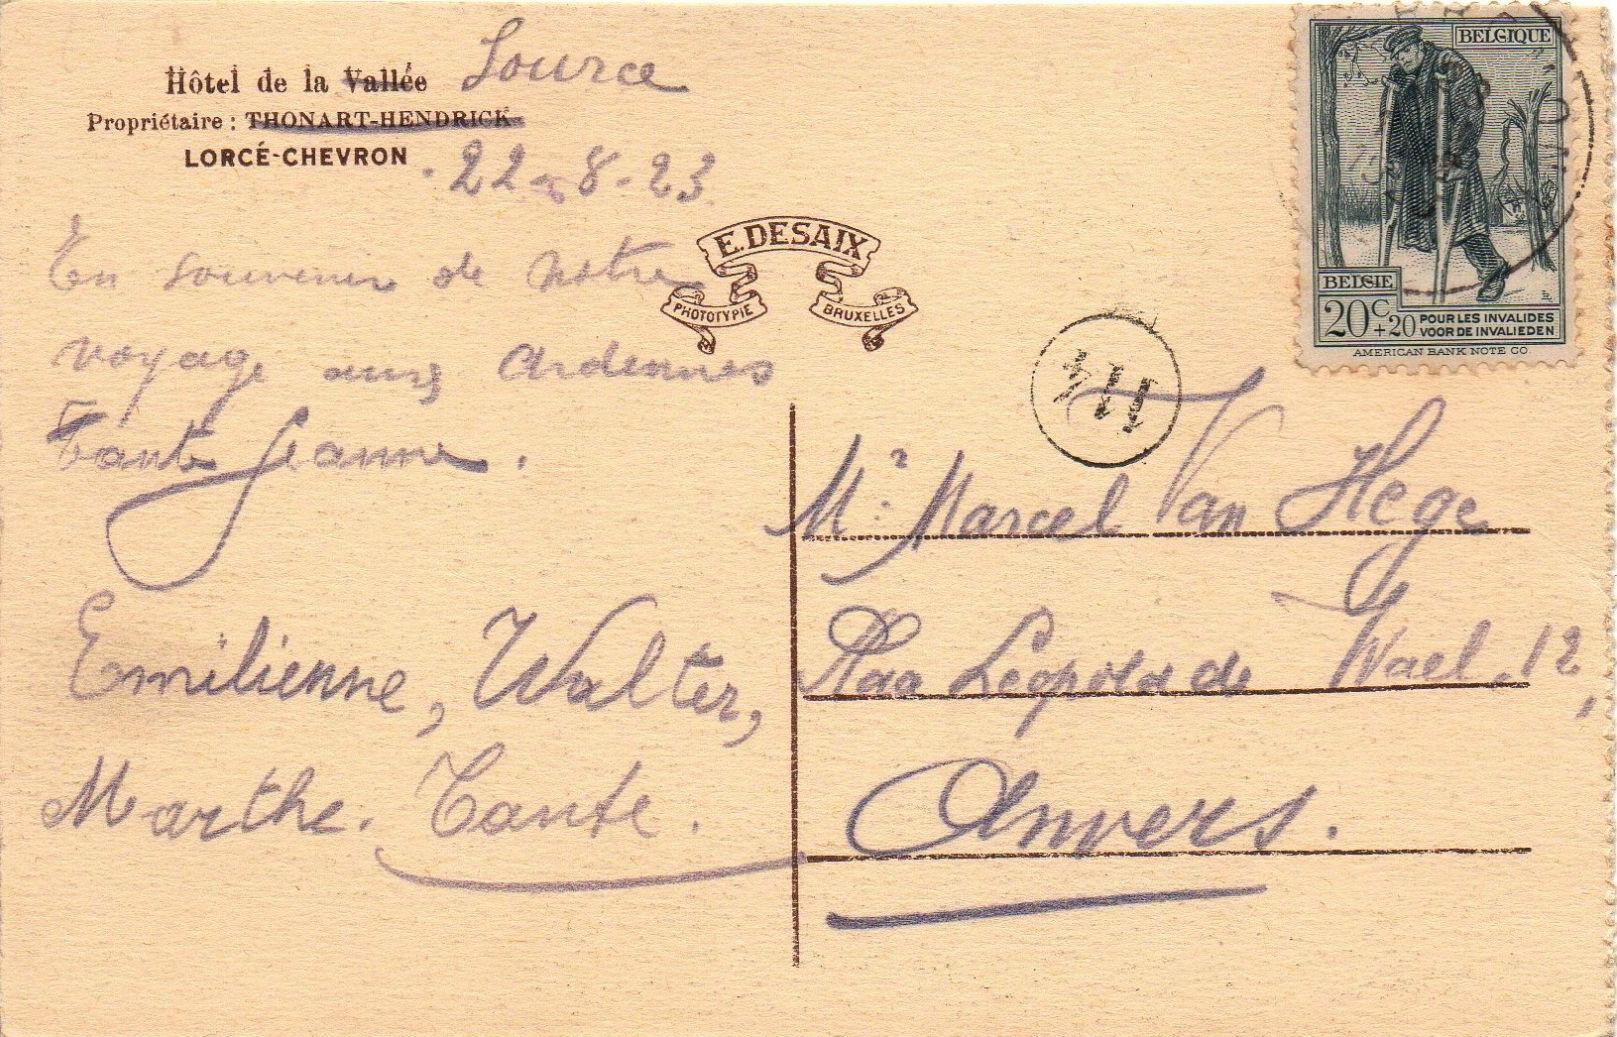 Hôtel de la Vallée Source
Propriétaire : THONART-HENDRICK
LORCÉ-CHEVRON
22-8-23
En souvenir de notre
voyage aux Ardennes
Tante Jeanne.
Emilienne, Walter,
Marthe. Tante.
E. DESAIX
PHOTOTYPIE BRUXELLES
BELGIQUE
BELGIE
20c+20 POUR LES INVALIDES
VOOR DE INVALIEDEN
AMERICAN BANK NOTE CO.
Mr Marcel Van Hege
Leopold de Wael, 12,
Anvers.